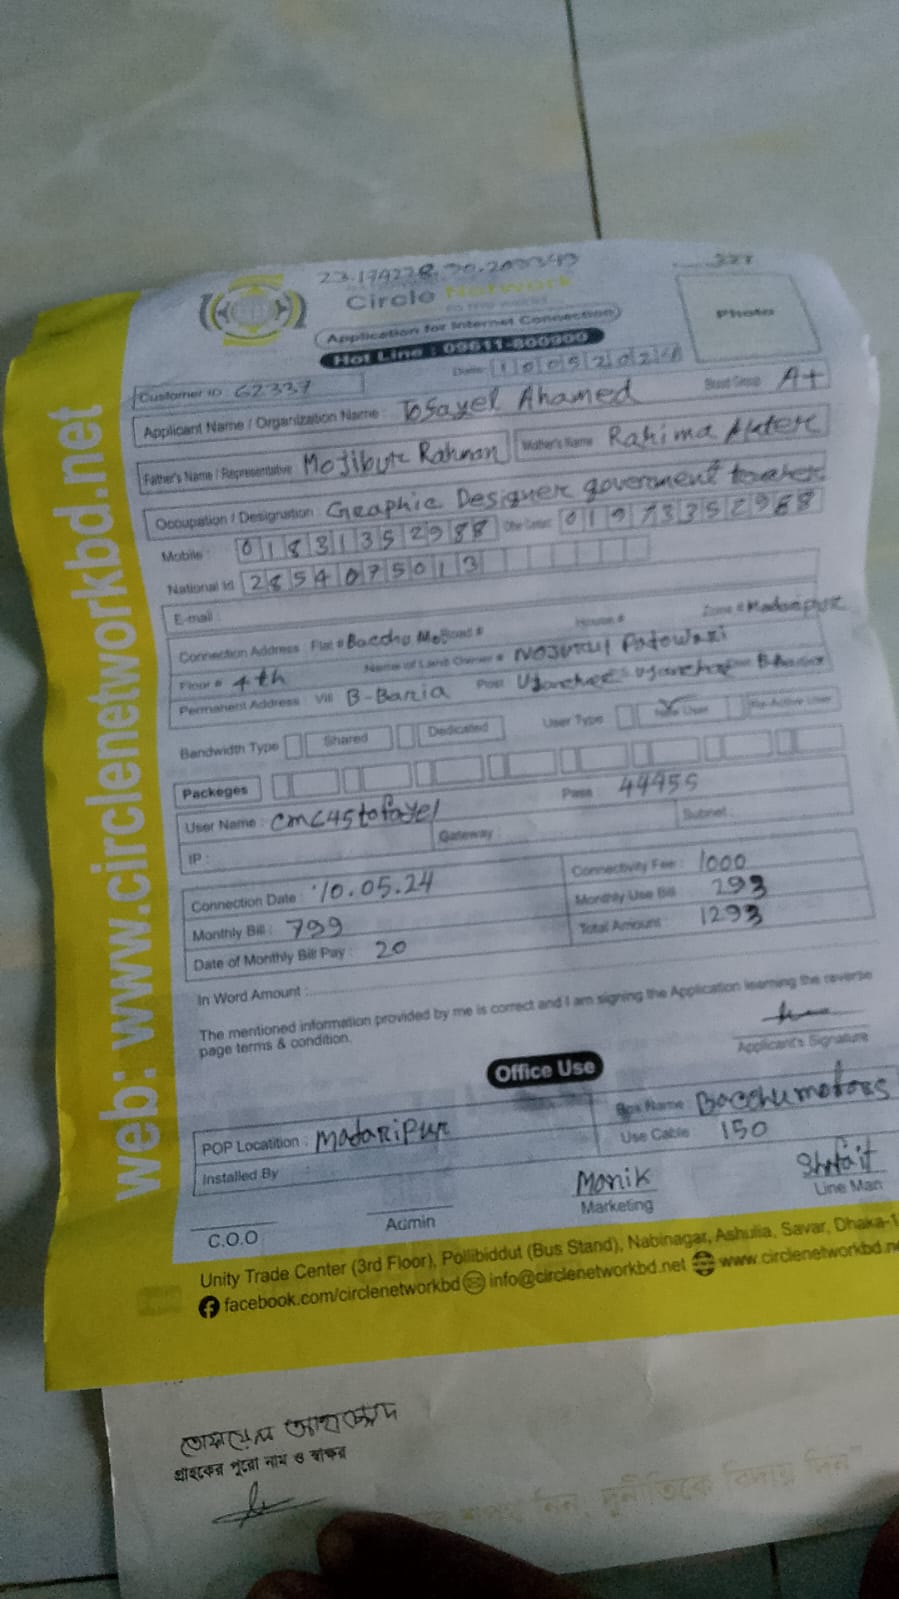 23.174228, 90.203349
327
Circle Network
Application for Internet Connection
Hot Line : 09611-800900
Photo
Date: 10052024
Customer ID 62337
Blood Group A+
Applicant Name / Organization Name : Tofayel Ahamed
Father's Name / Representative Mojibur Rahman Mother's Name Rahima Akter
Occupation / Designation : Graphic Designer goverment
Mobile : 01831352988 Other Contact 01973352988
National Id 2854075013
E-mail :
Connection Address Flat # Bacchu Road # House # Zone # Madaripur
Floor # 4th Name of Land Owner # Nojurul Patowari
Permanent Address : Vill B-Baria Post
Bandwidth Type Shared Dedicated User Type New User Re-Active User
Packeges
User Name : cmc45tofayel Pass : 44455
IP : Gateway : Subnet :
Connection Date : 10.05.24 Connectivity Fee : 1000
Monthly Bill : 799 Monthly Use Bill 293
Date of Monthly Bill Pay : 20 Total Amount : 1293
In Word Amount :
The mentioned information provided by me is correct and I am signing the Application learning the reverse
page terms & condition.
Applicant's Signature
Office Use
POP Locatition : Madaripur Box Name : Bacchu motors
Installed By Use Cable 150
Manik Shafait
C.O.O Admin Marketing Line Man
Unity Trade Center (3rd Floor), Pollibiddut (Bus Stand), Nabinagar, Ashulia, Savar, Dhaka-1
facebook.com/circlenetworkbd info@circlenetworkbd.net www.circlenetworkbd.ne
web: www.circlenetworkbd.net
তোফায়েল আহম্মেদ
গ্রাহকের পুরো নাম ও স্বাক্ষর
নিন, দুর্নীতিকে বিদায় দিন"